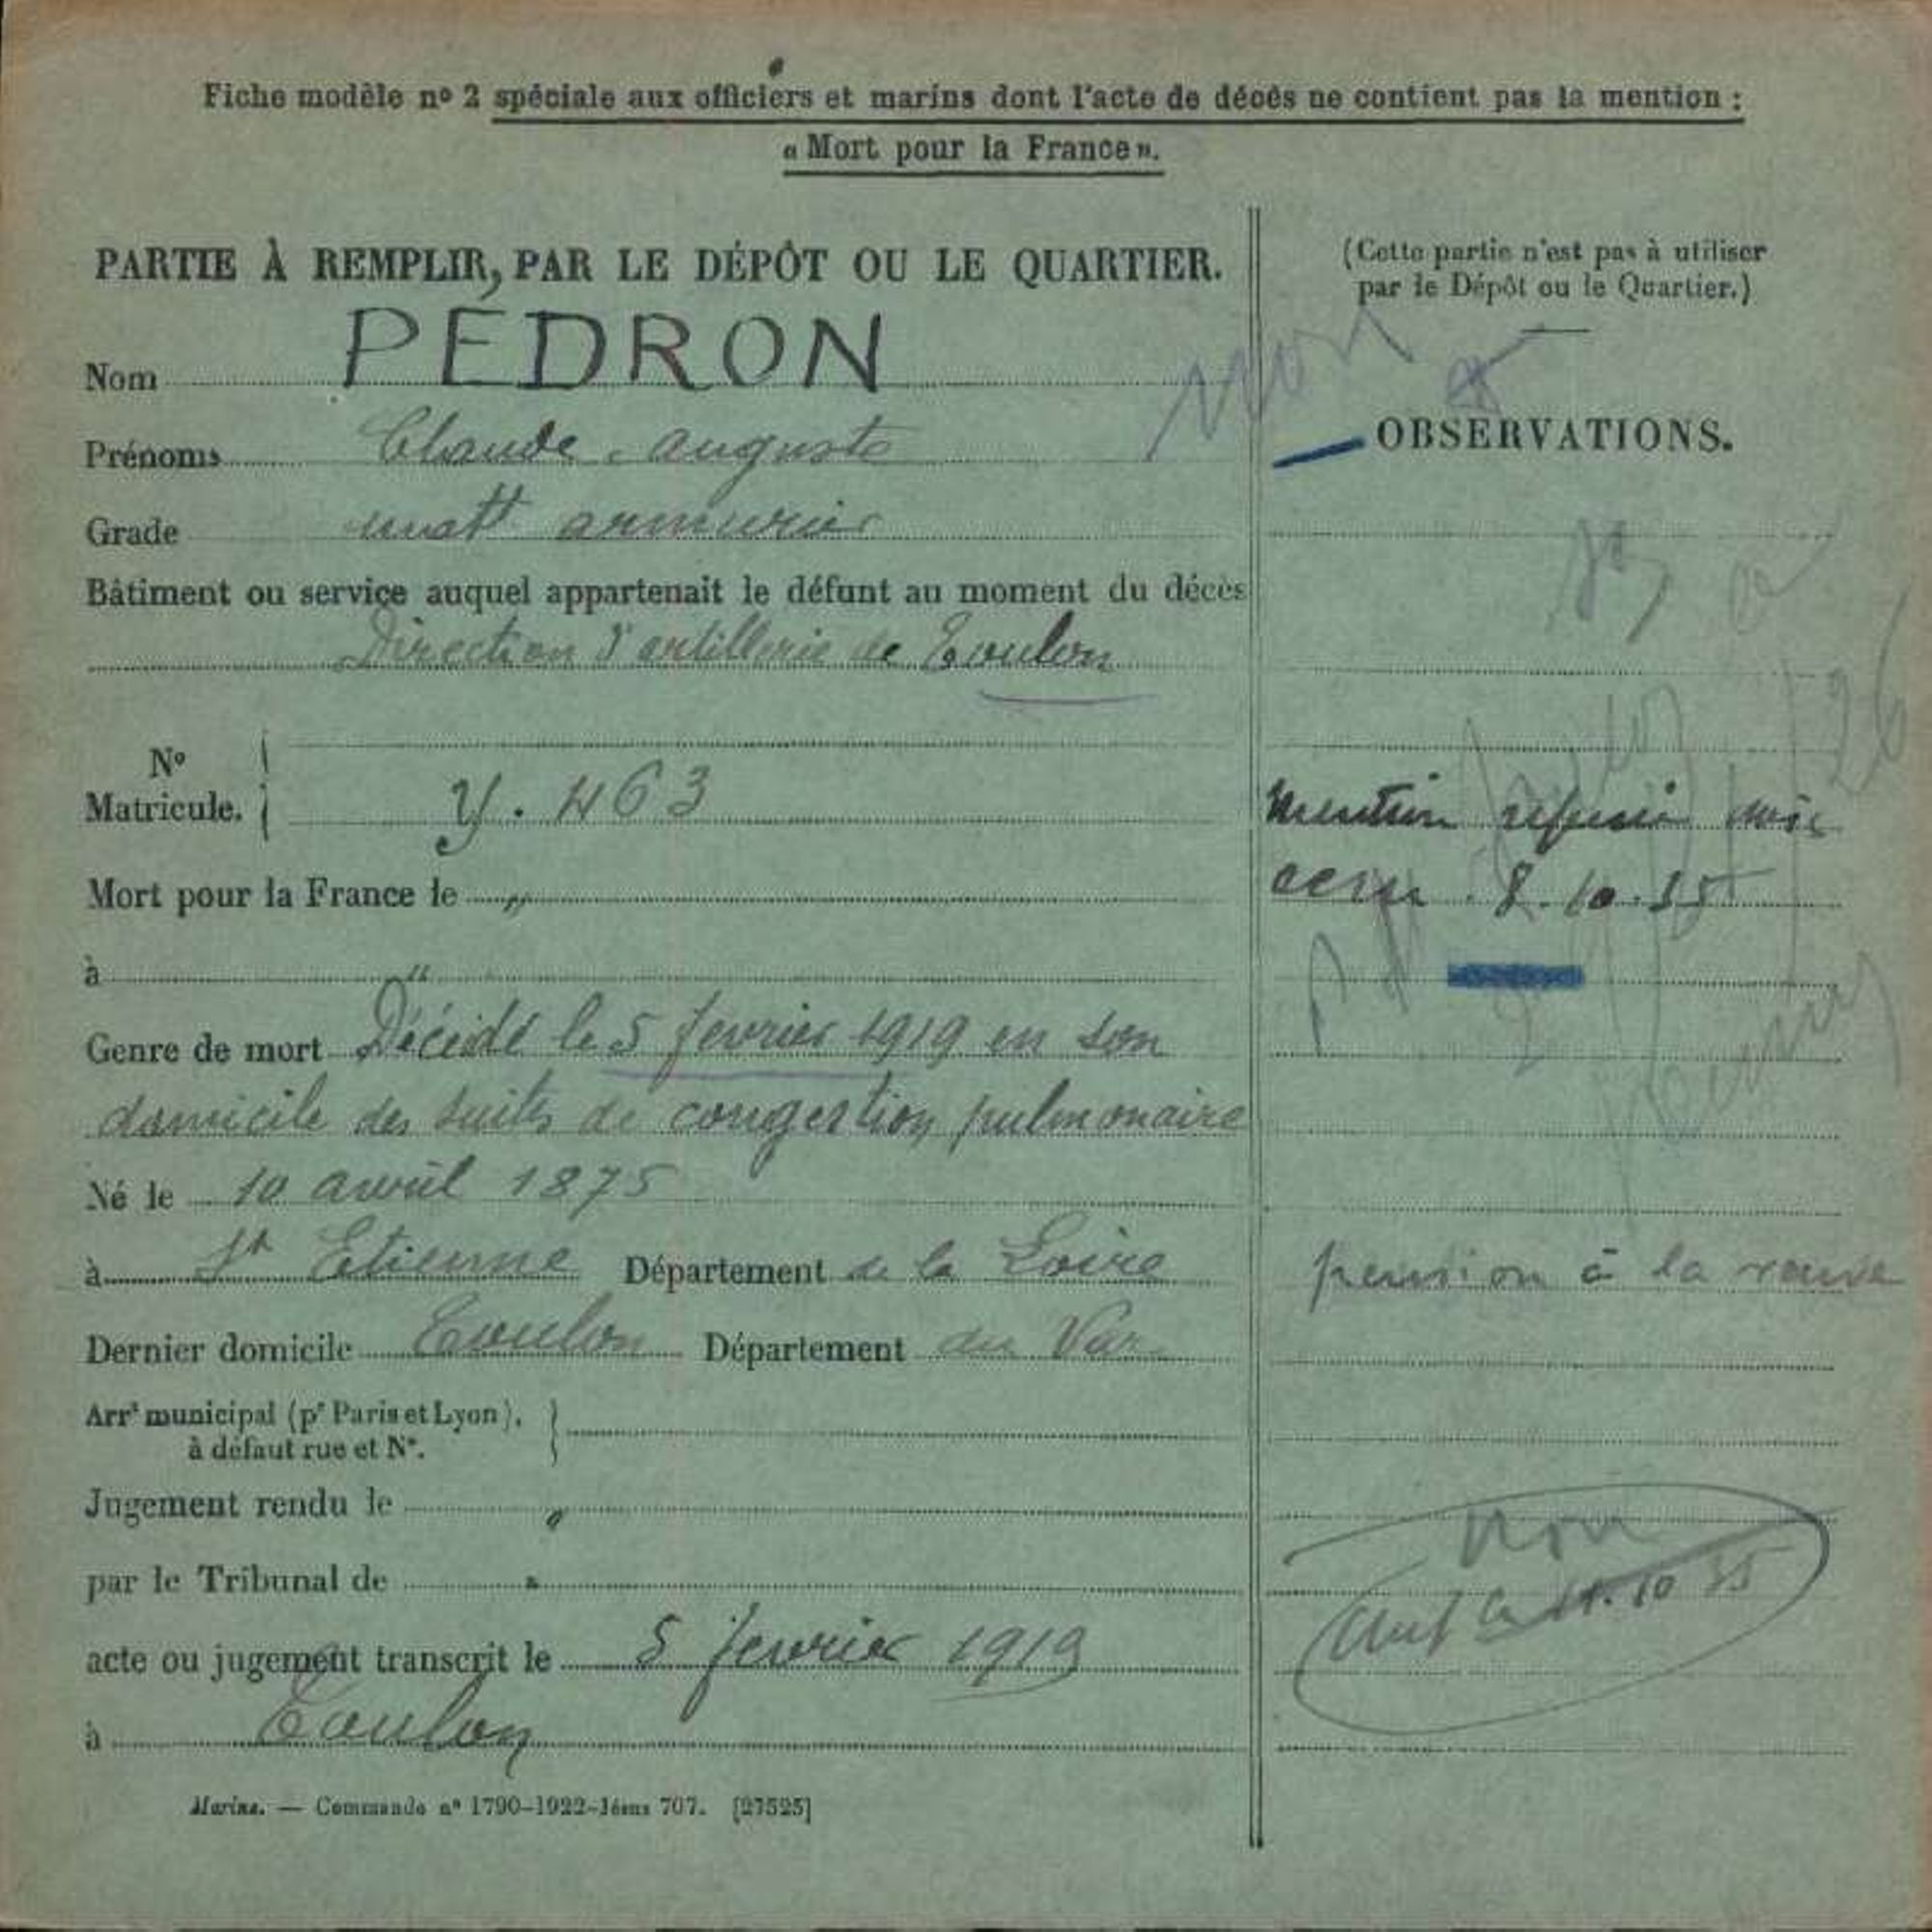 Fiche modèle nº 2 spéciale aux officiers et marins dont l'acte de décès ne contient pas la mention :
« Mort pour la France ».
PARTIE À REMPLIR, PAR LE DÉPÔT OU LE QUARTIER.
Nom PÉDRON
Prénoms Claude Auguste
Grade armurier
Bâtiment ou service auquel appartenait le défunt au moment du décès
Direction d'artillerie de Toulon
Nº
Matricule. Y. 463
Mort pour la France le "
à "
Genre de mort Décédé le 5 fevrier 1919 en son
domicile des suites de congestion pulmonaire
Né le 10 avril 1875
à St Etienne Département de la Loire
Dernier domicile Toulon Département du Var
Arrt municipal (pr Paris et Lyon),
à défaut rue et Nº.
Jugement rendu le "
par le Tribunal de "
acte ou jugement transcrit le 5 fevrier 1919
à Toulon
Marine. — Commande nº 1790-1922-16ème 707. [27525]
(Cette partie n'est pas à utiliser
par le Dépôt ou le Quartier.)
non
OBSERVATIONS.
mention refusée
8.10.35
pension à la veuve
non